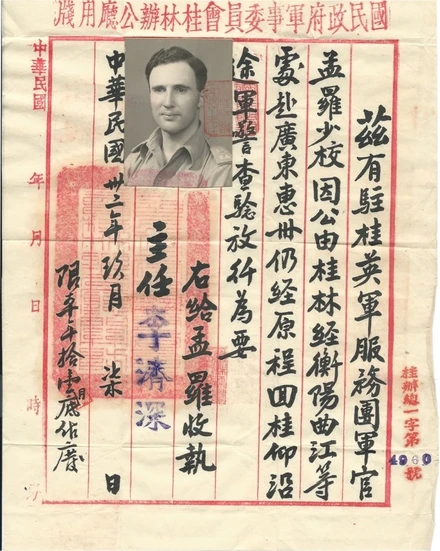 國民政府軍事委員會桂林辦公廳用牋
桂辦總一字第 號
茲有駐桂英軍服務團軍官
孟羅少校因公由桂林經衡陽曲江等
處赴廣東惠州仍經原程回桂仰沿
途軍警查驗放行為要
右給孟羅收執
主任李濟深
中華民國卅二年玖月 柒 日
限本年 底作廢
中華民國 年 月 日 時